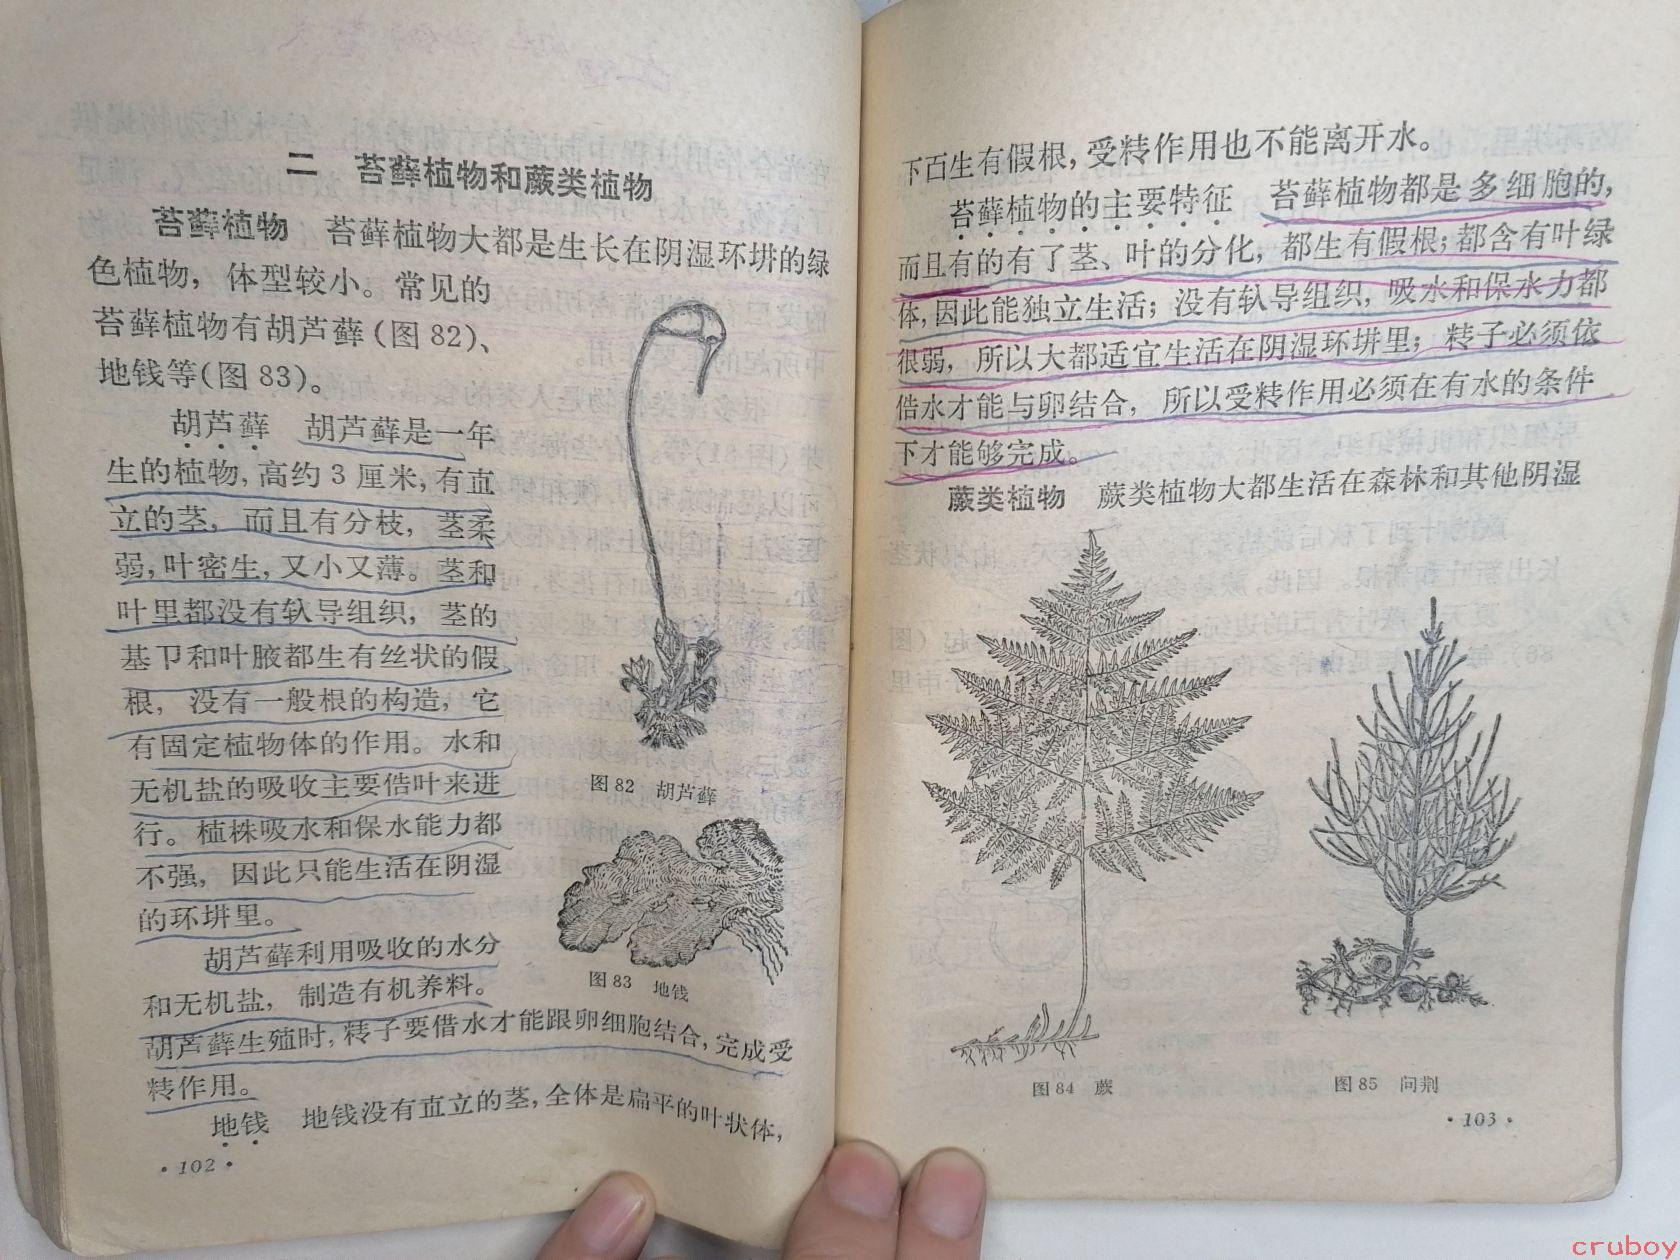 二 苔藓植物和蕨类植物
苔藓植物 苔藓植物大都是生长在阴湿环境的绿
色植物，体型较小。常见的
苔藓植物有胡芦藓(图 82)、
地钱等(图 83)。
胡芦藓 胡芦藓是一年
生的植物，高约 3 厘米，有直
立的茎，而且有分枝，茎柔
弱，叶密生，又小又薄。茎和
叶里都没有输导组织，茎的
基卩和叶腋都生有丝状的假
根，没有一般根的构造，它
有固定植物体的作用。水和
无机盐的吸收主要借叶来进
行。植株吸水和保水能力都
不强，因此只能生活在阴湿
的环境里。
胡芦藓利用吸收的水分
和无机盐，制造有机养料。
胡芦藓生殖时，精子要借水才能跟卵细胞结合，完成受
精作用。
地钱 地钱没有直立的茎，全体是扁平的叶状体，
图 82 胡芦藓
图 83 地钱
·102·
下面生有假根，受精作用也不能离开水。
苔藓植物的主要特征 苔藓植物都是多细胞的，
而且有的有了茎、叶的分化，都生有假根；都含有叶绿
体，因此能独立生活；没有输导组织，吸水和保水力都
很弱，所以大都适宜生活在阴湿环境里；精子必须依
借水才能与卵结合，所以受精作用必须在有水的条件
下才能够完成。
蕨类植物 蕨类植物大都生活在森林和其他阴湿
图 84 蕨
图 85 问荆
·103·
cruboy